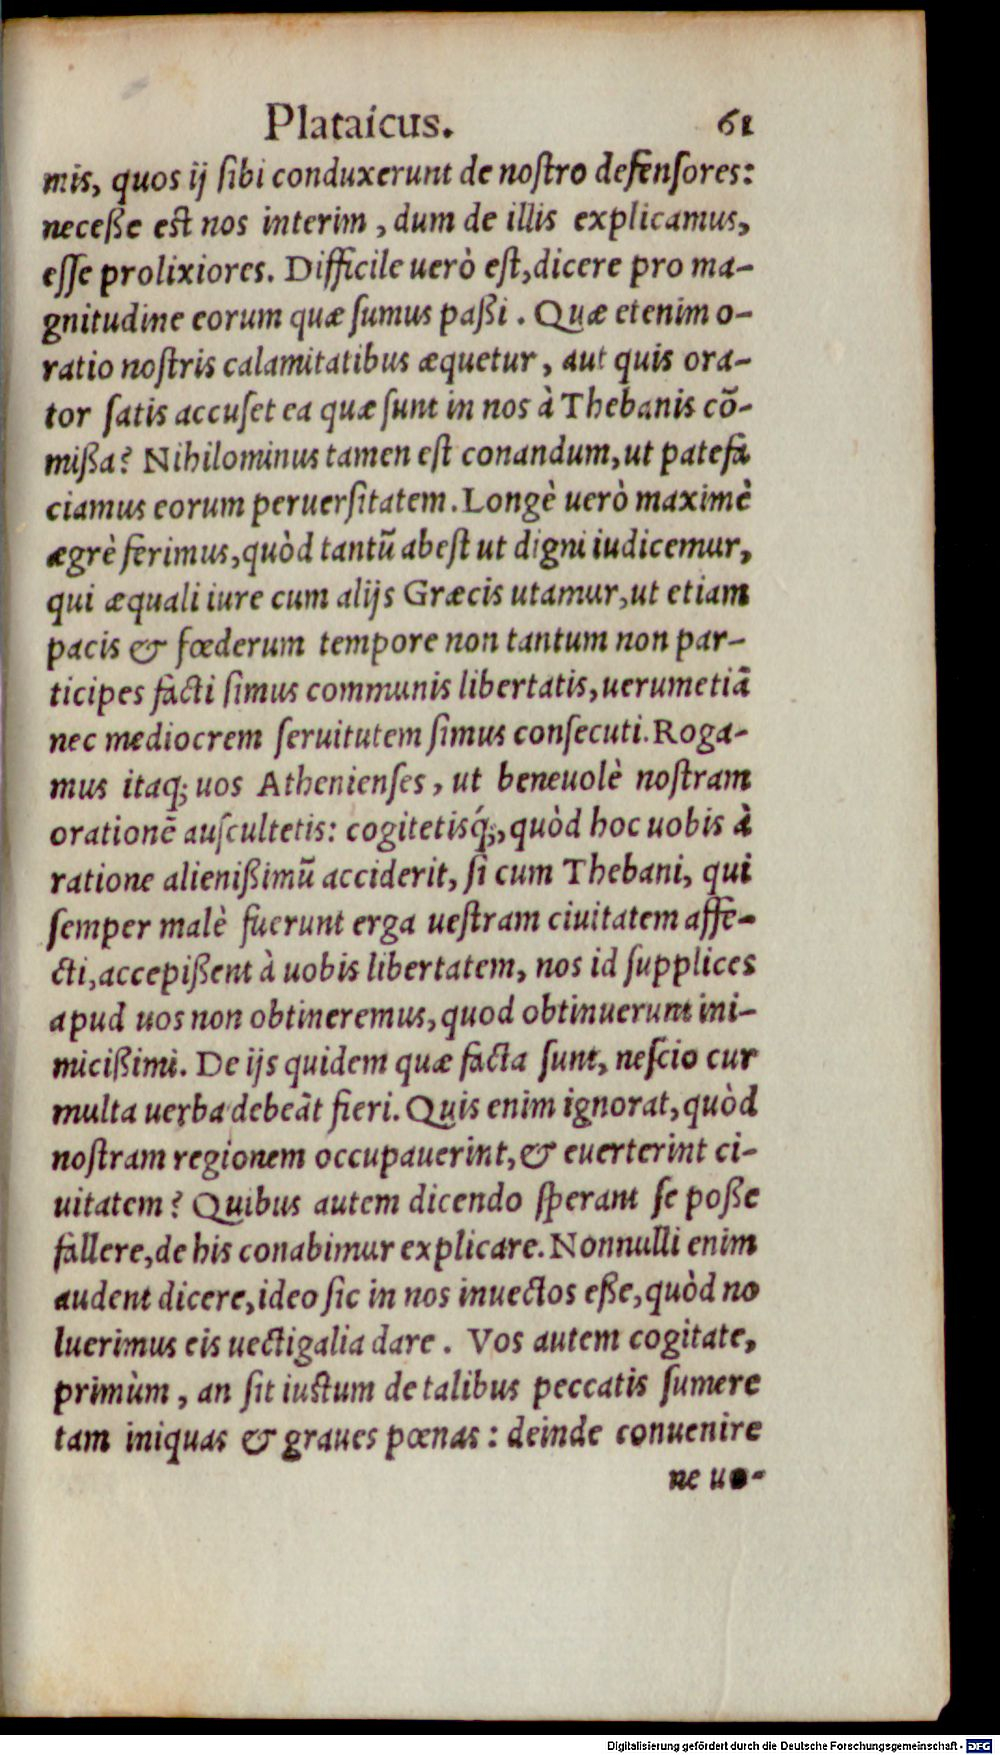 Plataicus. 61
mis, quos ij ſibi conduxerunt de noſtro defenſores:
neceße est nos interim, dum de illis explicamus,
eſſe prolixiores. Difficile uerò eſt, dicere pro ma-
gnitudine eorum quæ ſumus paßi. Quæ etenim o-
ratio noſtris calamitatibus æquetur, aut quis ora-
tor ſatis accuſet ea quæ ſunt in nos à Thebanis cō-
mißa? Nihilominus tamen eſt conandum, ut patefa
ciamus eorum peruerſitatem. Longè uerò maximè
ægrè ferimus, quòd tantū abeſt ut digni iudicemur,
qui æquali iure cum alijs Græcis utamur, ut etiam
pacis & fœderum tempore non tantum non par-
ticipes facti ſimus communis libertatis, uerumetiā
nec mediocrem ſeruitutem ſimus conſecuti. Roga-
mus itaq; uos Athenienſes, ut beneuolè noſtram
orationē auſcultetis: cogitetisq́;, quòd hoc uobis à
ratione alienißimū acciderit, ſi cum Thebani, qui
ſemper malè fuerunt erga ueſtram ciuitatem affe-
cti, accepißent à uobis libertatem, nos id ſupplices
apud uos non obtineremus, quod obtinuerunt ini-
micißimi. De ijs quidem quæ facta ſunt, neſcio cur
multa uerba debeāt fieri. Quis enim ignorat, quòd
noſtram regionem occupauerint, & euerterint ci-
uitatem? Quibus autem dicendo ſperant ſe poße
fallere, de his conabimur explicare. Nonnulli enim
audent dicere, ideo ſic in nos inuectos eße, quòd no
luerimus eis uectigalia dare. Vos autem cogitate,
primùm, an ſit iustum de talibus peccatis ſumere
tam iniquas & graues pœnas: deinde conuenire
ne uo-
Digitalisierung gefördert durch die Deutsche Forschungsgemeinschaft - DFG